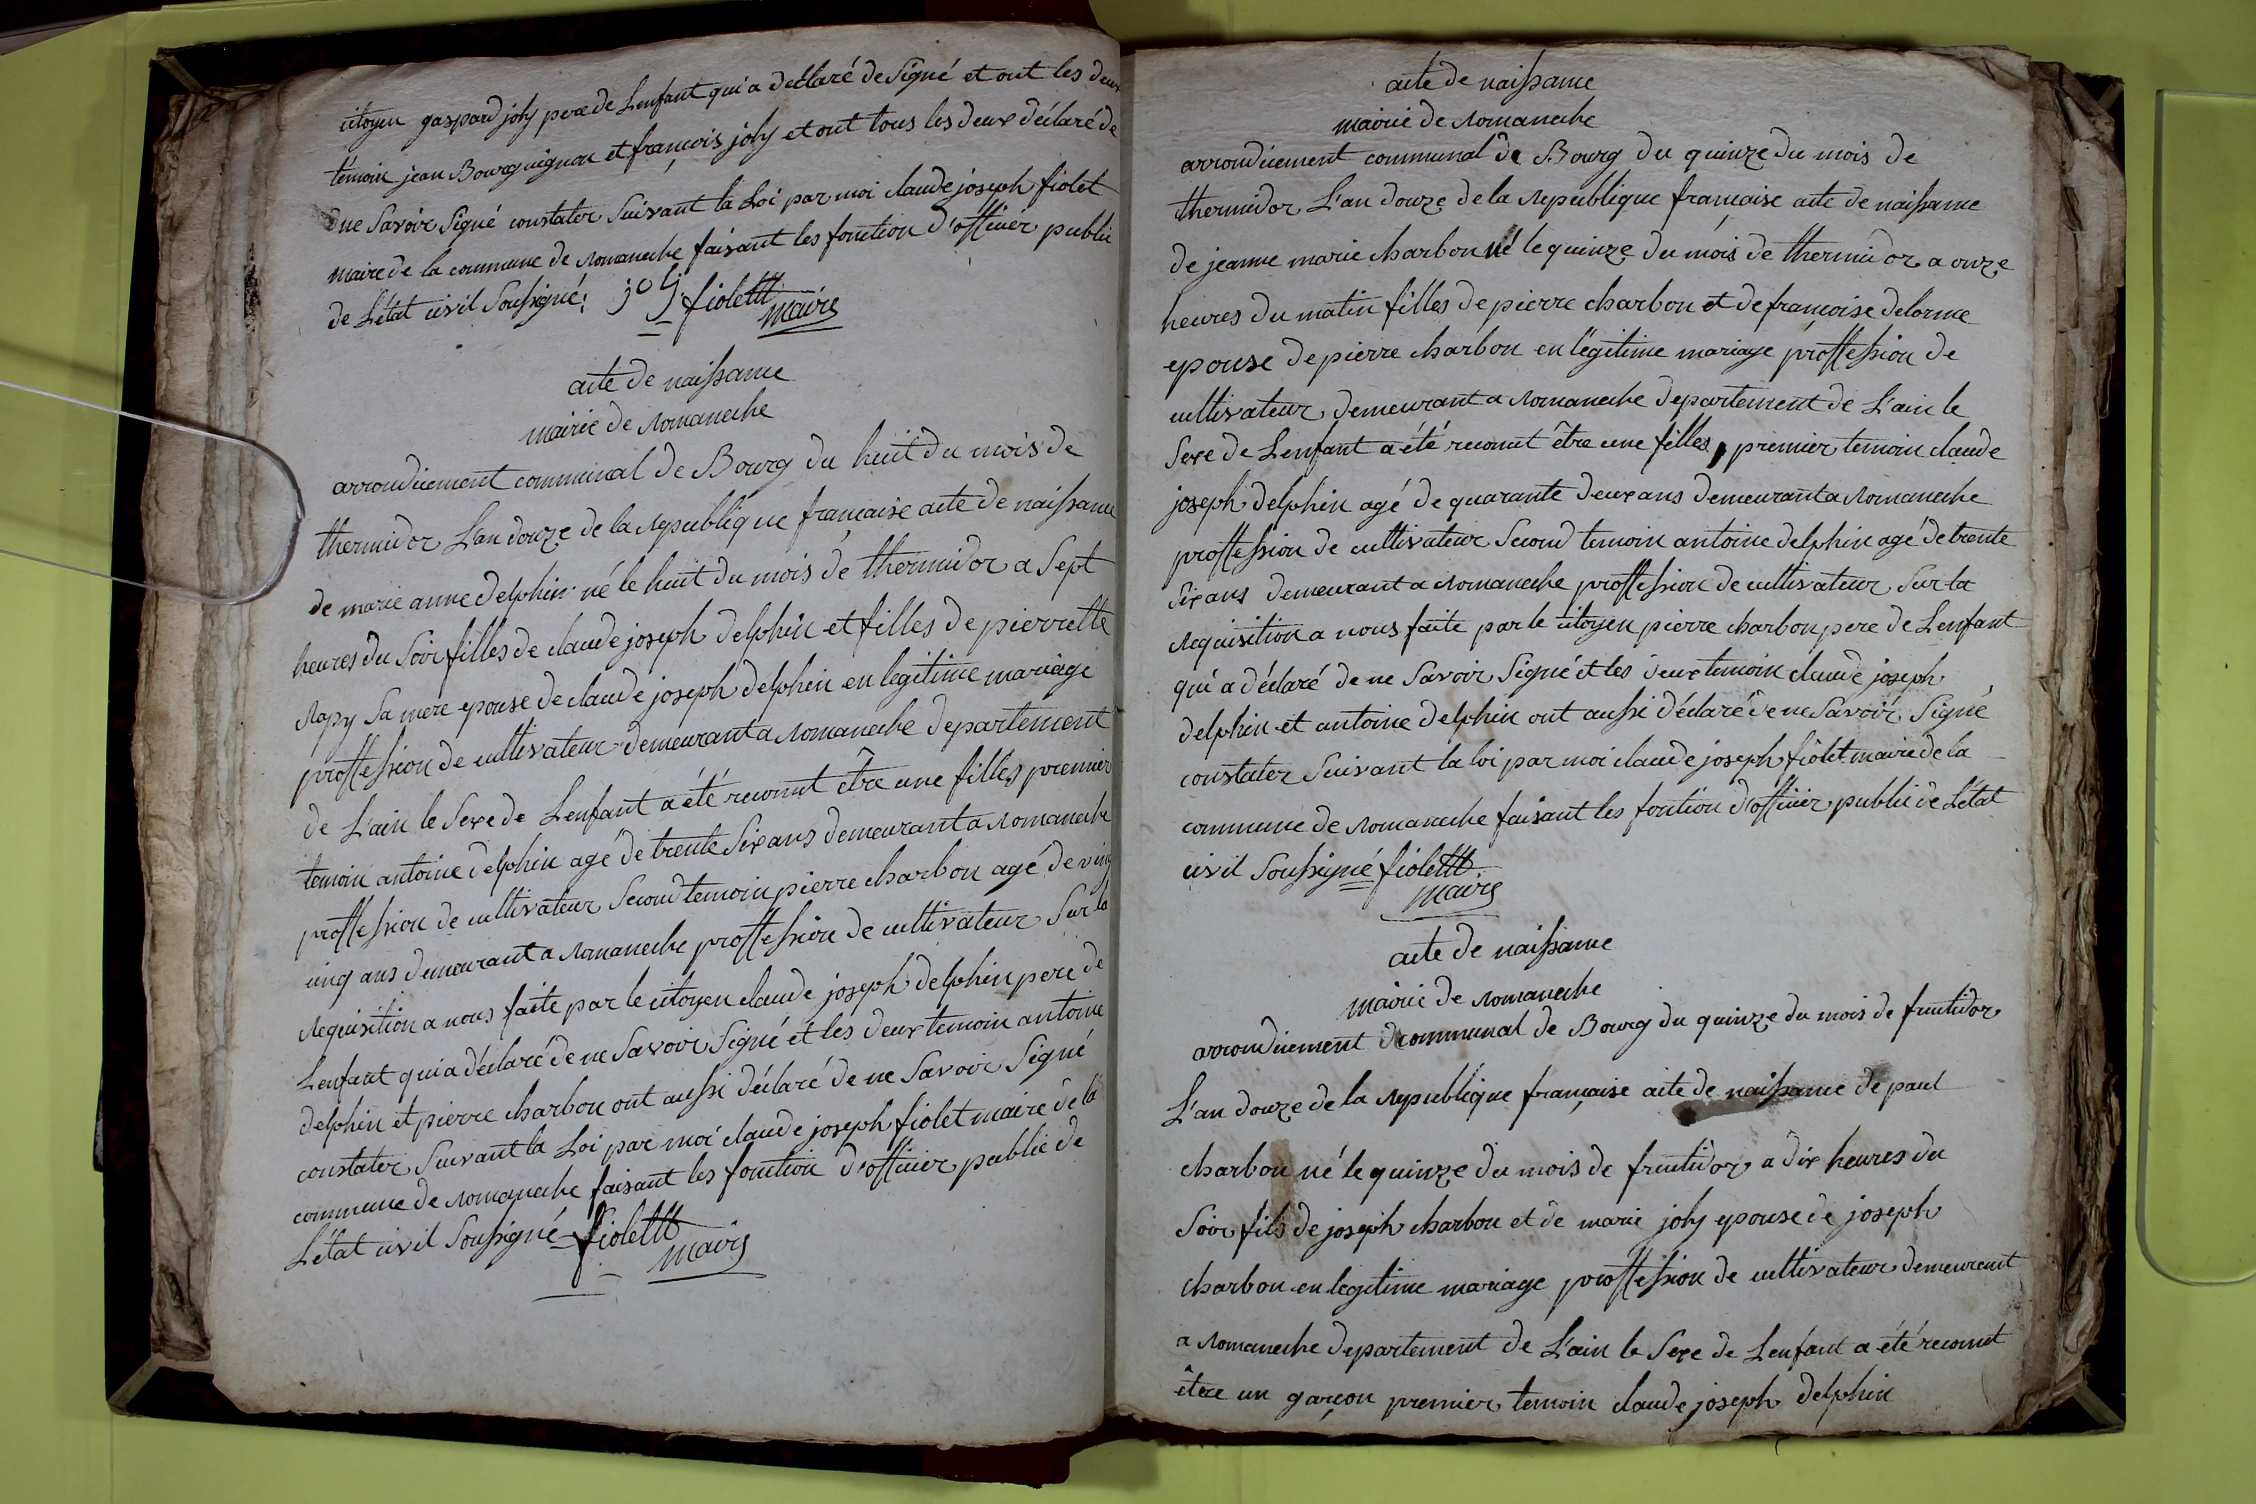 citoyen gaspard joly pere de Lenfant qui a declaré de Signé et ont les deux
témoin jean Bourguignon et françois joly et ont tous les deux déclaré de
ne Savoir Signé constater Suivant la Loi par moi claude joseph fiolet
maire de la commune de Romaneche faisant les fonction d'officier public
de L'état civil Soussigné. joly fiolett
maire
acte de naissance
mairie de Romaneche
arrondicement communal de Bourg du huit du mois de
thermidor L'an douze de la Republique française acte de naissance
de marie anne delphin né le huit du mois de thermidor a Sept
heures du Soir filles de claude joseph delphin et filles de pierrette
Rapy Sa mere epouse de claude joseph delphin en legitime mariage
proffession de cultivateur demeurant a Romaneche departement
de L'ain le Sexe de Lenfant a été reconnut être une filles premier
temoin antoine delphin agé de trente Six ans demeurant a Romaneche
proffession de cultivateur Second temoin pierre charbon agé de ving
cinq ans demeurant a Romaneche proffession de cultivateur Sur la
Requisition a nous faite par le citoyen claude joseph delphin pere de
Lenfant qui a déclaré de ne Savoir Signé et les deux temoin antoine
delphin et pierre charbon ont aussi déclaré de ne Savoir Signé
constater Suivant la Loi par moi claude joseph fiolet maire de la
commune de Romaneche faisant les fonction d'officier public de
L'état civil Soussigné fiolett
maire
acte de naissance
mairie de Romaneche
arrondicement communal de Bourg du quinze du mois de
thermidor L'an douze de la Republique française acte de naissance
de jeanne marie charbon né le quinze du mois de thermidor a onze
heures du matin filles de pierre charbon et de françoise delorme
epouse de pierre charbon en légitime mariage proffession de
cultivateur demeurant a Romaneche departement de L'ain le
Sexe de Lenfant a été reconut être une filles, premier temoin claude
joseph delphin agé de quarante deux ans demeurant a Romaneche
proffession de cultivateur Second temoin antoine delphin agé de trente
Six ans demeurant a Romaneche proffession de cultivateur Sur la
Requisition a nous faite par le citoyen pierre charbon pere de Lenfant
qui a déclaré de ne Savoir Signé et les deux temoin claude joseph
delphin et antoine delphin ont aussi déclaré de ne Savoir Signé
constater Suivant la loi par moi claude joseph fiolet maire de la
commune de Romaneche faisant les fonction d'officier public de L'état
civil Soussigné fiolett
maire
acte de naissance
mairie de Romaneche
arrondicement communal de Bourg du quinze du mois de fructidor
L'an douze de la Republique française acte de naissance de paul
charbon né le quinze du mois de fructidor a dix heures du
Soir fils de joseph charbon et de marie joly epouse de joseph
charbon en legitime mariage proffession de cultivateur demeurent
a Romaneche departement de L'ain le Sexe de Lenfant a été reconut
être un garçon premier temoin claude joseph delphin